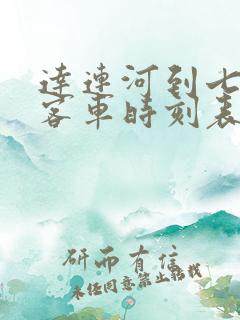 達連河到七
客車時刻表
研而有信
未经同意禁止转载